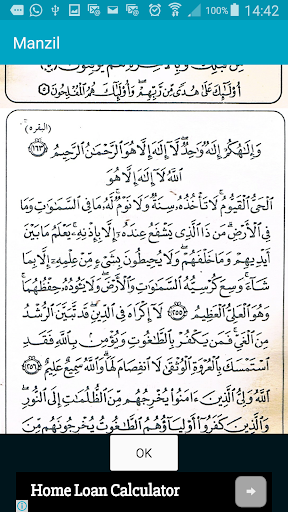 100% 14:42
Manzil
أُولَٰئِكَ عَلَىٰ هُدًى مِّن رَّبِّهِمْ ۖ وَأُولَٰئِكَ هُمُ الْمُفْلِحُونَ ۝٥
(البقره)
وَإِلَٰهُكُمْ إِلَٰهٌ وَاحِدٌ ۖ لَّا إِلَٰهَ إِلَّا هُوَ الرَّحْمَٰنُ الرَّحِيمُ ۝١٦٣
اللَّهُ لَا إِلَٰهَ إِلَّا هُوَ
الْحَيُّ الْقَيُّومُ ۚ لَا تَأْخُذُهُ سِنَةٌ وَلَا نَوْمٌ ۚ لَّهُ مَا فِي السَّمَٰوَٰتِ وَمَا
فِي الْأَرْضِ ۗ مَن ذَا الَّذِي يَشْفَعُ عِندَهُ إِلَّا بِإِذْنِهِ ۚ يَعْلَمُ مَا بَيْنَ
أَيْدِيهِمْ وَمَا خَلْفَهُمْ ۖ وَلَا يُحِيطُونَ بِشَيْءٍ مِّنْ عِلْمِهِ إِلَّا بِمَا
شَاءَ ۚ وَسِعَ كُرْسِيُّهُ السَّمَٰوَٰتِ وَالْأَرْضَ ۖ وَلَا يَئُودُهُ حِفْظُهُمَا ۚ
وَهُوَ الْعَلِيُّ الْعَظِيمُ ۝٢٥٥ لَا إِكْرَاهَ فِي الدِّينِ ۖ قَد تَّبَيَّنَ الرُّشْدُ
مِنَ الْغَيِّ ۚ فَمَن يَكْفُرْ بِالطَّٰغُوتِ وَيُؤْمِن بِاللَّهِ فَقَدِ
اسْتَمْسَكَ بِالْعُرْوَةِ الْوُثْقَىٰ لَا انفِصَامَ لَهَا ۗ وَاللَّهُ سَمِيعٌ عَلِيمٌ ۝٢٥٦
اللَّهُ وَلِيُّ الَّذِينَ ءَامَنُوا يُخْرِجُهُم مِّنَ الظُّلُمَٰتِ إِلَى النُّورِ ۖ
وَالَّذِينَ كَفَرُوا أَوْلِيَاؤُهُمُ الطَّٰغُوتُ يُخْرِجُونَهُم مِّنَ
OK
Home Loan Calculator